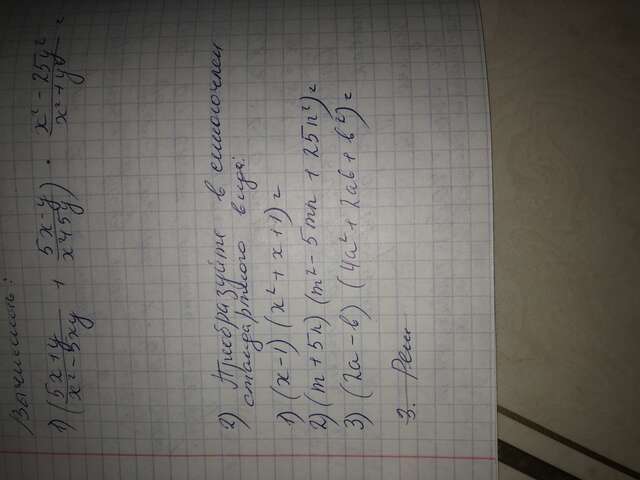 Вычислить:
1) (5x+y / x² - 5xy + 5x-y / x²+5y) · x² - 25y² / x² + y² =
2) Преобразуйте в многочлен
стандартного вида:
1) (x-1) (x² + x + 1) =
2) (m + 5n) (m² - 5mn + 25n²) =
3) (2a - b) (4a² + 2ab + b²) =
3. Реш